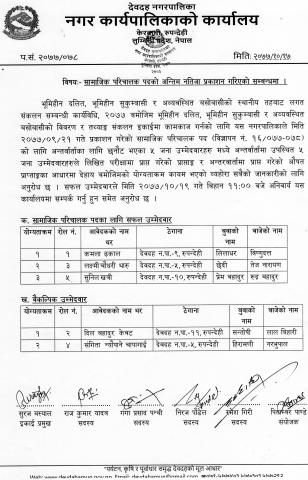 देवदह नगरपालिका
नगर कार्यपालिकाको कार्यालय
केरवानी, रुपन्देही
लुम्बिनी प्रदेश, नेपाल
प.सं. २०७७/०७८
मिति: २०७७/१०/१७
विषय:- सामाजिक परिचालक पदको अन्तिम नतिजा प्रकाशन गरिएको सम्बन्धमा ।
भूमिहीन दलित, भूमिहीन सुकुम्वासी र अव्यवस्थित बसोवासीको स्थानीय तहबाट लगत
संकलन सम्बन्धी कार्यविधि, २०७७ बमोजिम भूमिहीन दलित, सुकुम्वासी र अव्यवस्थित
बसोवासीको विवरण र तथ्याङ्क संकलन इकाईमा कामकाज गर्नको लागि यस नगरपालिकाले मिति
२०७७/०९/२१ गते प्रकाशन गरेको सामाजिक परिचालक पद (विज्ञापन नं. १६/०७७-०७८)
को लागि अन्तर्वार्ताका लागि छनौट भएका ५ जना उम्मेदवारहरु मध्ये अन्तर्वार्तामा उपस्थित ५
जना उम्मेदवारहरुले लिखित परीक्षामा प्राप्त गरेको प्राप्ताङ्क र अन्तरवार्तामा प्राप्त गरेको औषत
प्राप्ताङ्कका आधारमा देहाय बमोजिमको योग्यता कायम भएको व्यहोरा सबैको जानकारीको लागि
अनुरोध छ । सफल उम्मेदवारले मिति २०७७/१०/१९ गते बिहान ११:०० बजे अनिवार्य यस
कार्यालयमा सम्पर्क गर्नु हुन समेत अनुरोध छ ।
क. सामाजिक परिचालक पदका लागि सफल उम्मेदवार
योग्यताक्रम रोल नं. आवेदकको नाम थर ठेगाना बुवाको नाम बाजेको नाम
१ १ कमला ढकाल देवदह न.पा.-९, रुपन्देही लिलाधर विष्णुदत्त
२ ३ लक्ष्मी चौधरी थारु देवदह न.पा.-५, रुपन्देही छेदी तेज नारायण
३ ५ सुनिल खत्री देवदह न.पा.-१०, रुपन्देही प्रेम बहादुर रुद्र बहादुर
ख. वैकल्पिक उम्मेदवार
योग्यताक्रम रोल नं. आवेदकको नाम थर ठेगाना बुवाको नाम बाजेको नाम
१ २ दिल बहादुर केवट देवदह न.पा.-११, रुपन्देही सन्तोषी लाल बिहारी
२ ४ संगिता न्यौपाने चापागाई देवदह न.पा.-५, रुपन्देही हिरामणी
सुरज बस्याल राज कुमार यादव गंगा प्रसाद पन्थी निरज पौडेल रमेश गिरी पिताम्बर पाण्डे
इकाई प्रमुख सदस्य सदस्य सदस्य सदस्य संयोजक
"पर्यटन, कृषि र पूर्वाधार समृद्ध देवदहको मूल आधार"